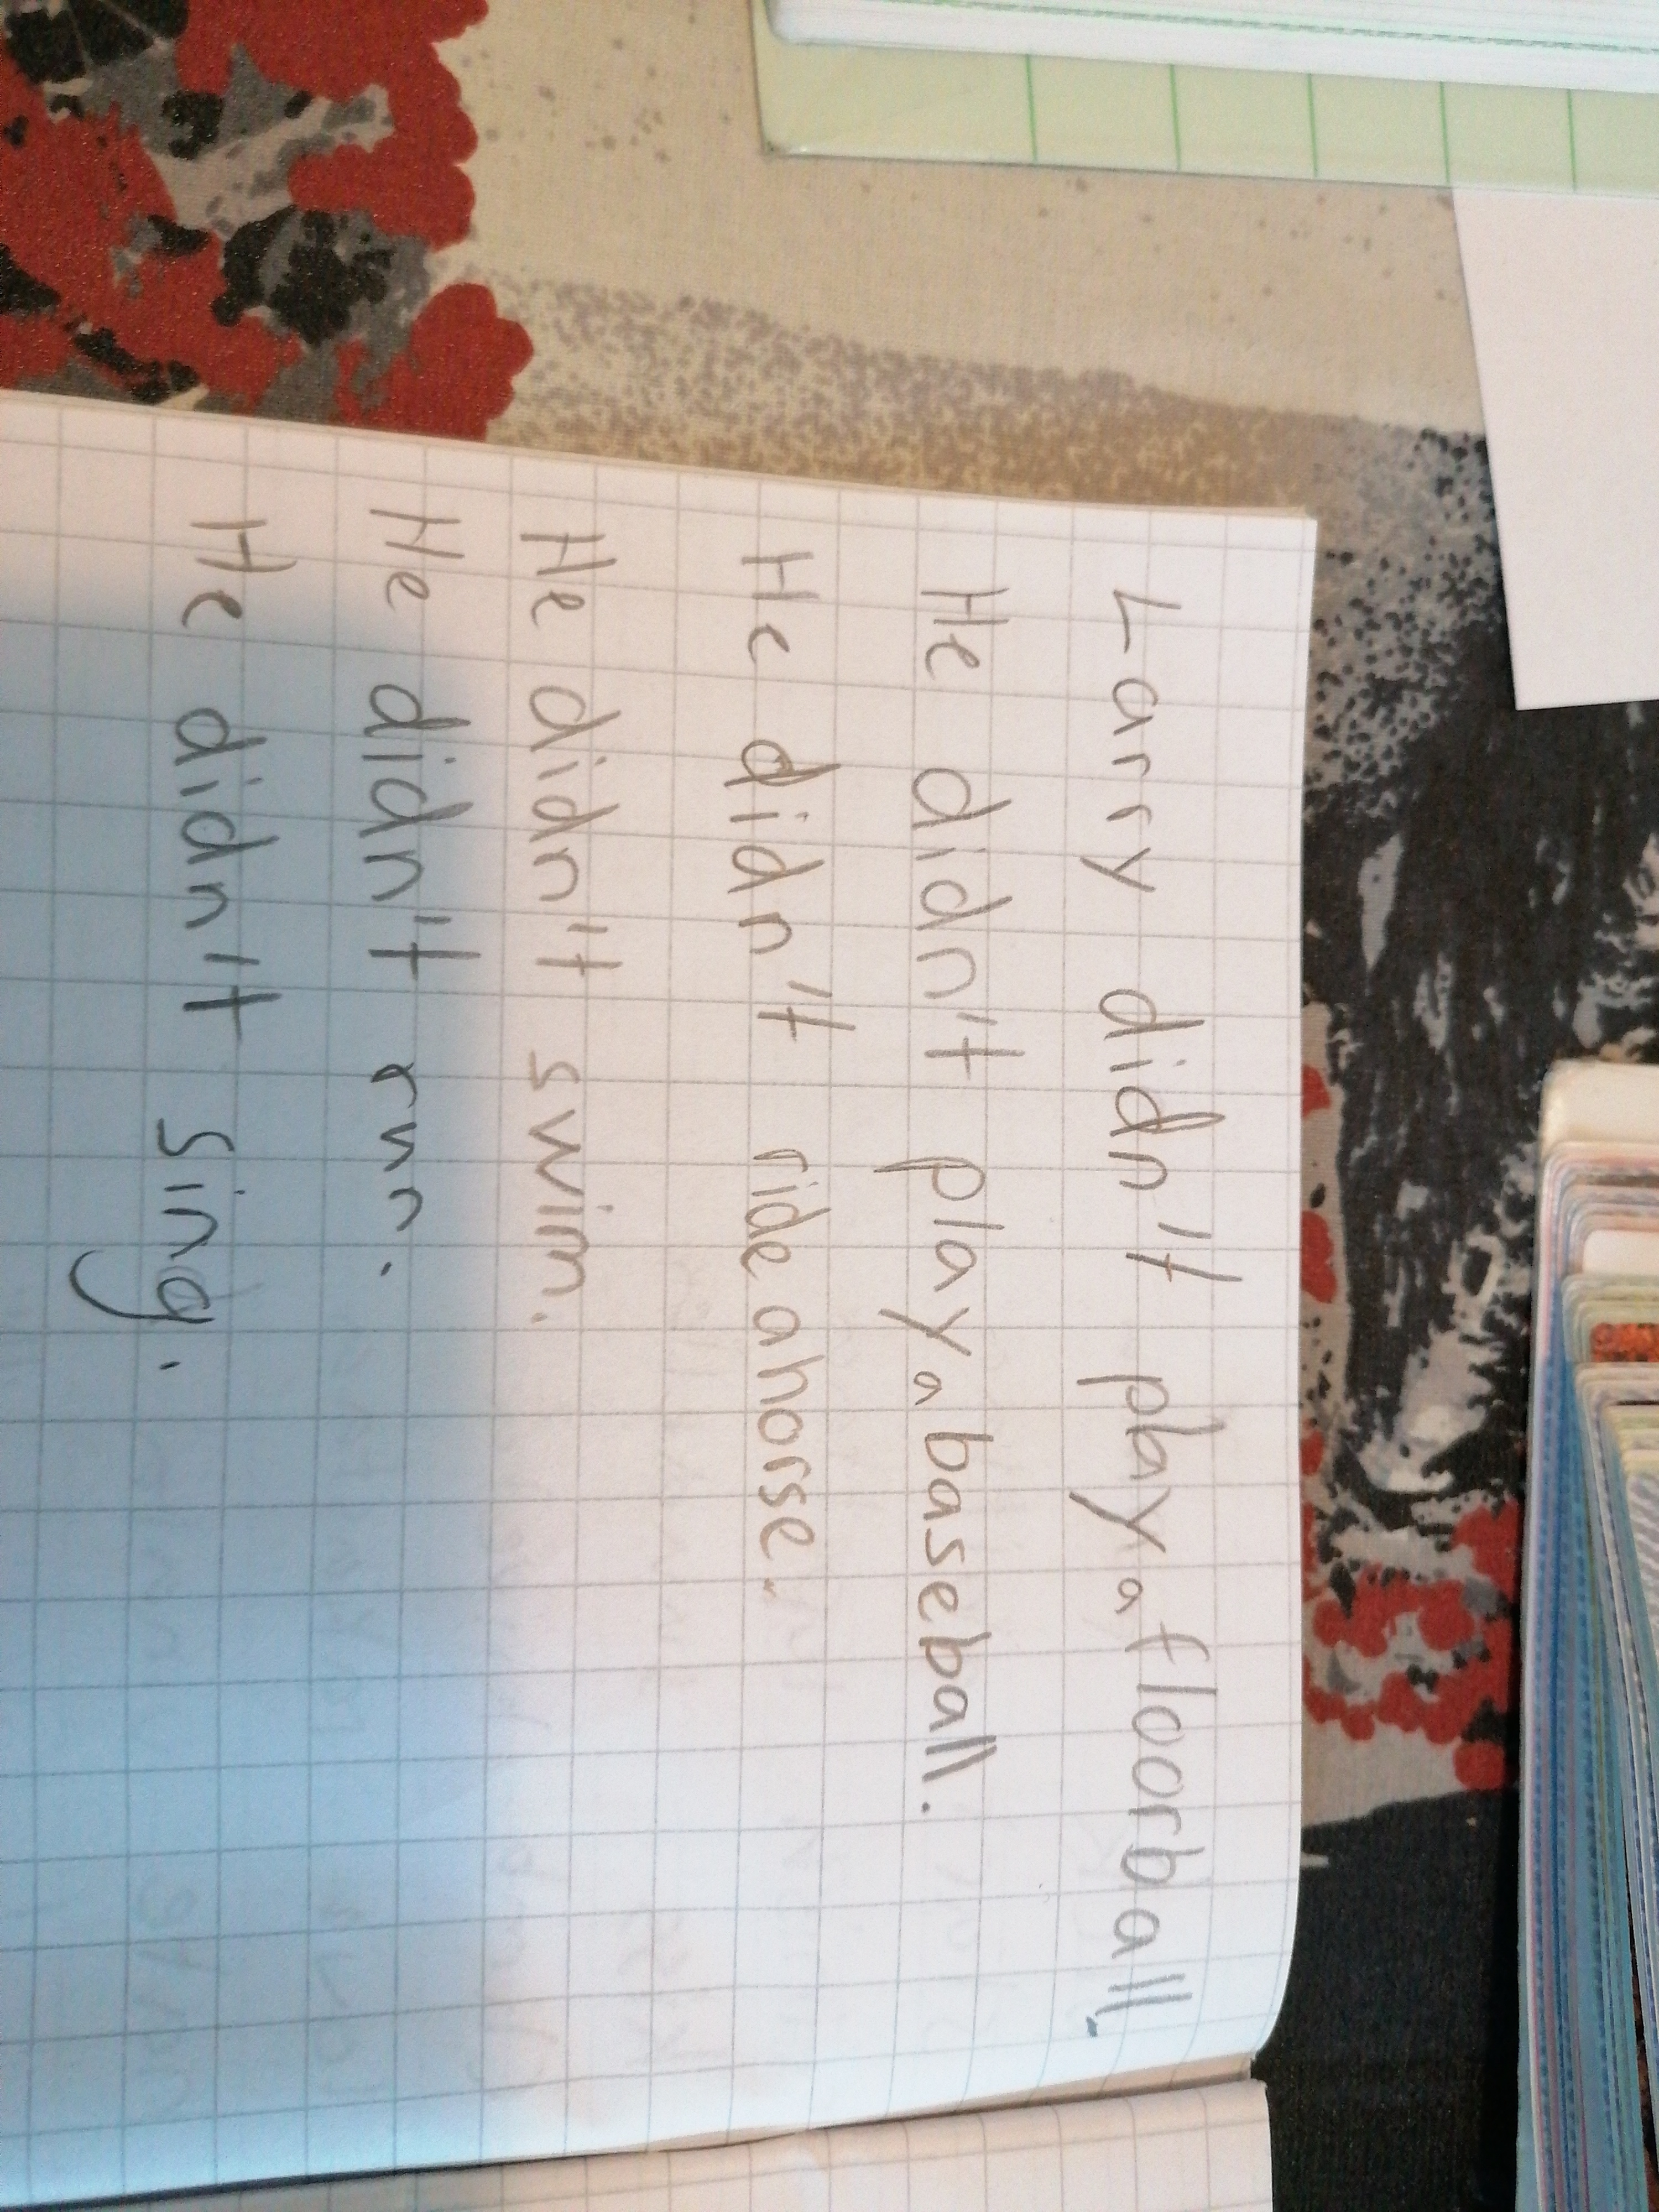 Larry didn't play a floorball.
He didn't play a baseball.
He didn't ride a horse.
He didn't swim.
He didn't run.
He didn't sing.